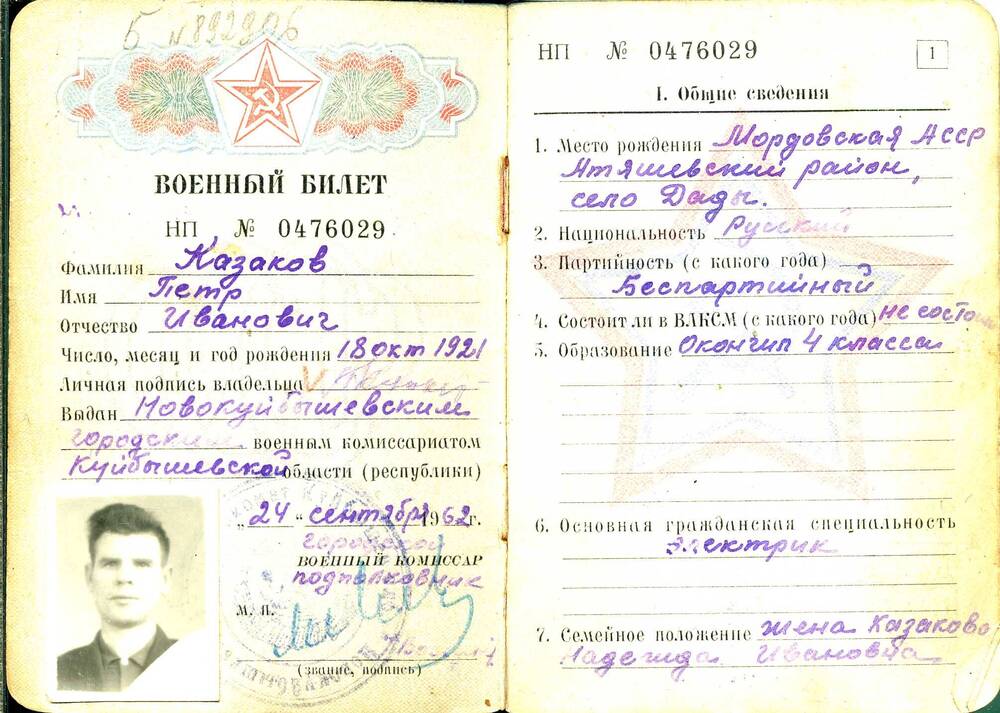 Б №892906
ВОЕННЫЙ БИЛЕТ
НП № 0476029
Фамилия Казаков
Имя Петр
Отчество Иванович
Число, месяц и год рождения 18 окт 1921
Личная подпись владельца V
Выдан Новокуйбышевским
городским военным комиссариатом
Куйбышевской области (республики)
„24“ сентября 1962 г.
городской
ВОЕННЫЙ КОМИССАР
подполковник
М. П.
(звание, подпись)
НП № 0476029
1
I. Общие сведения
1. Место рождения Мордовская АССР
Атяшевский район,
село Дады.
2. Национальность Русский
3. Партийность (с какого года)
Беспартийный
4. Состоит ли в ВЛКСМ (с какого года) не состои
5. Образование Окончил 4 класса
6. Основная гражданская специальность
электрик
7. Семейное положение жена Казакова
Надежда Ивановна